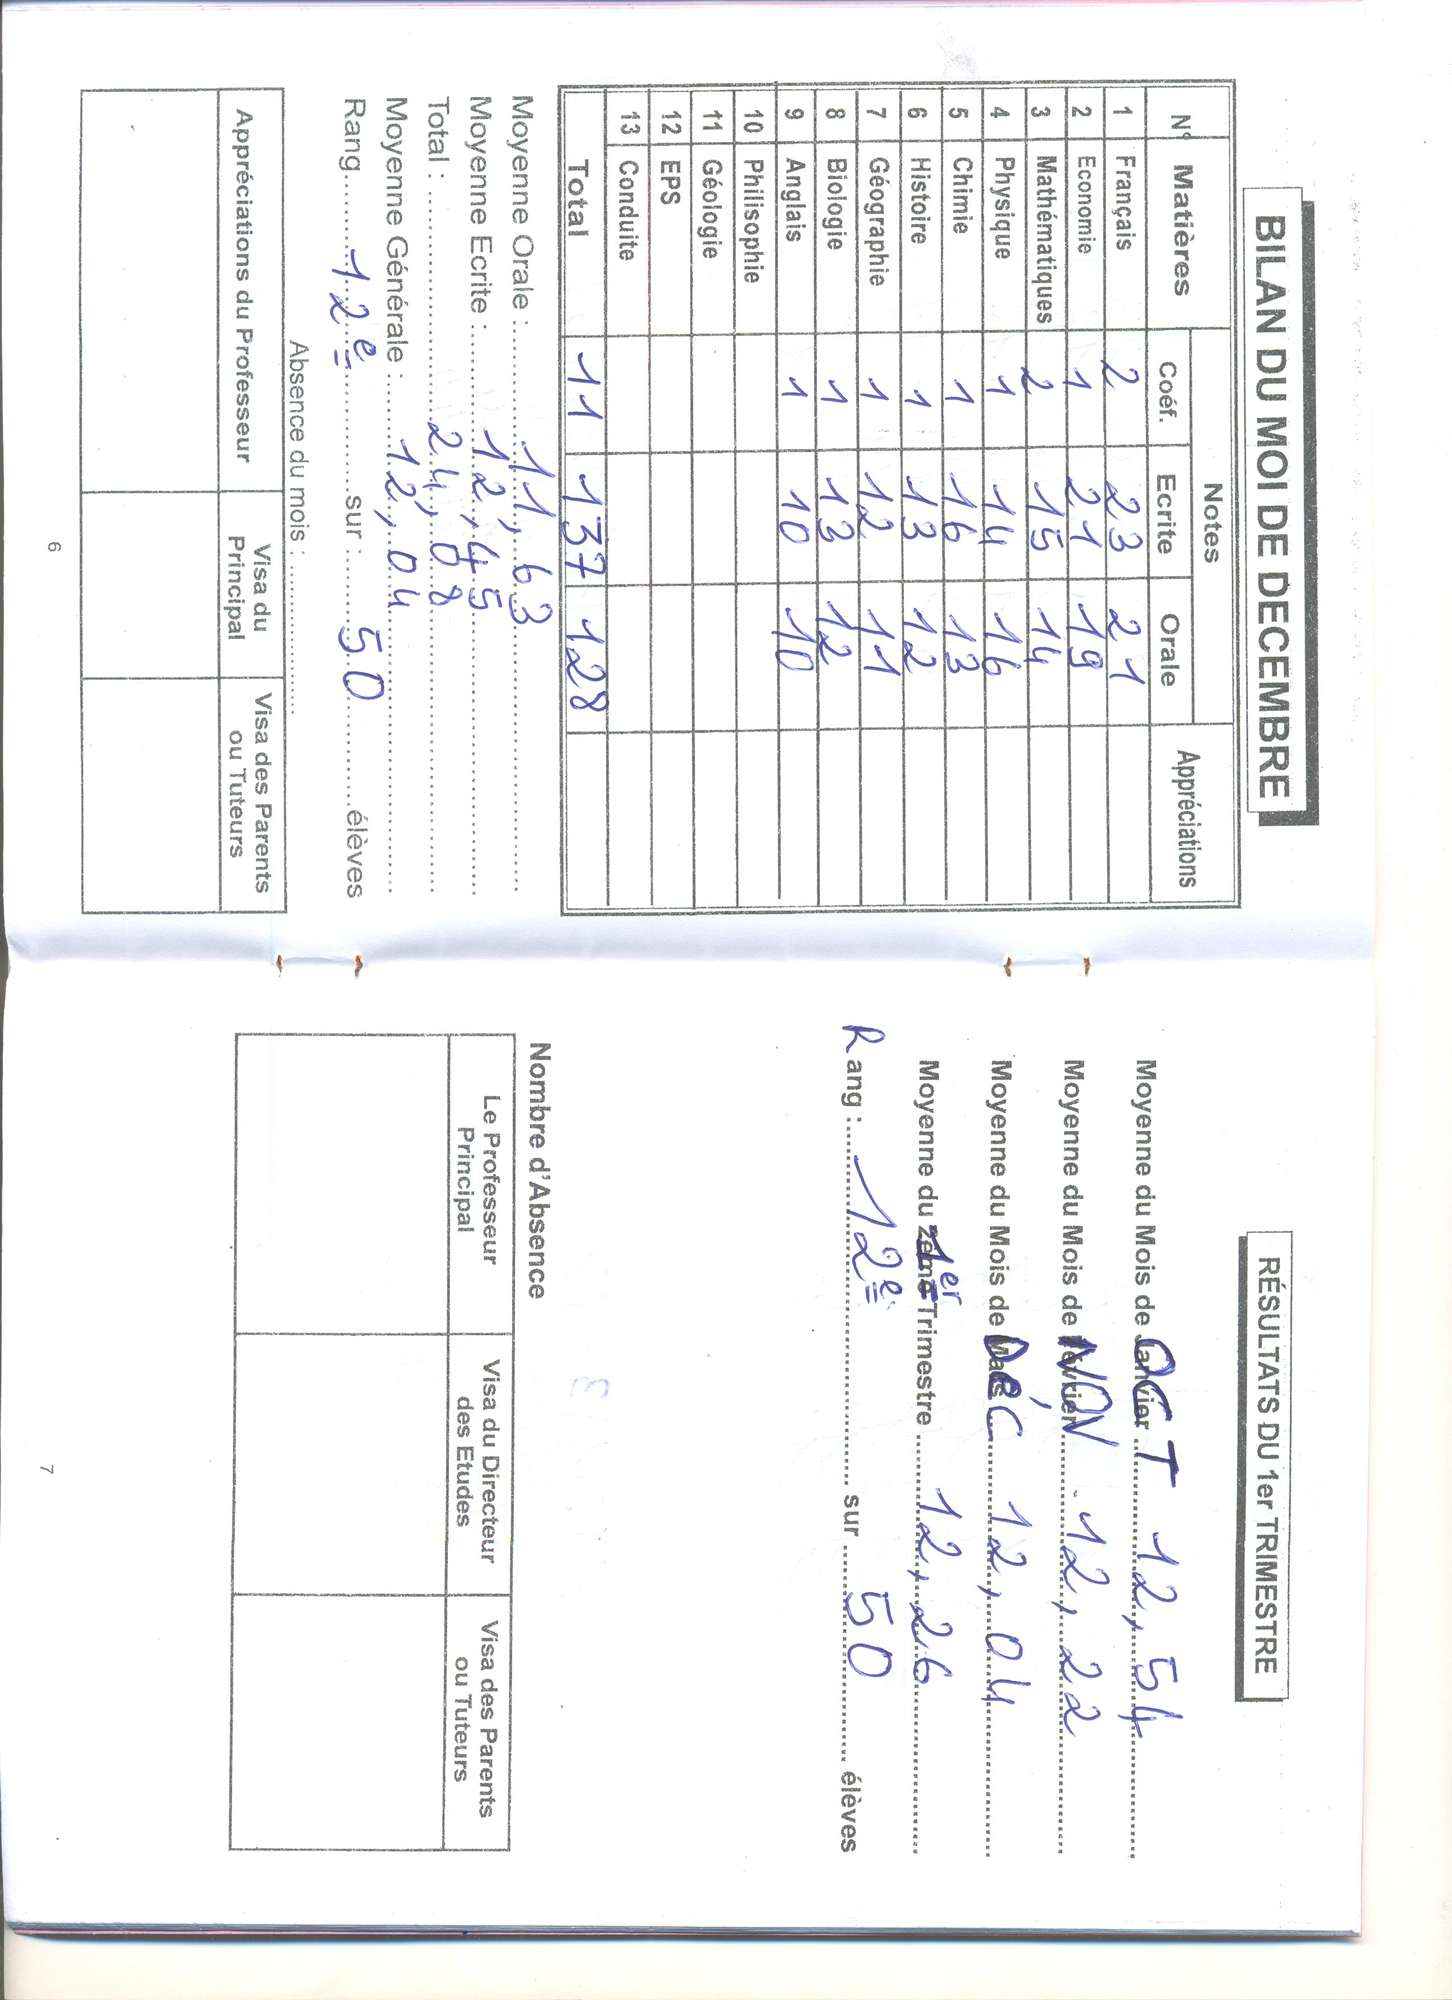 BILAN DU MOI DE DECEMBRE
N° Matières Notes Appréciations
Coéf. Ecrite Orale
1 Français 2 23 21
2 Economie 1 21 19
3 Mathématiques 2 15 14
4 Physique 1 14 16
5 Chimie 1 16 13
6 Histoire 1 13 12
7 Géographie 1 12 11
8 Biologie 1 13 12
9 Anglais 1 10 10
10 Philisophie
11 Géologie
12 EPS
13 Conduite
Total 11 137 128
Moyenne Orale : 11,63
Moyenne Ecrite : 12,45
Total : 24,08
Moyenne Générale : 12,04
Rang 12e sur : 50 élèves
Absence du mois :
Appréciations du Professeur Visa du Principal Visa des Parents ou Tuteurs
6
RÉSULTATS DU 1er TRIMESTRE
Moyenne du Mois de OCT 12,54
Moyenne du Mois de NOV 12,22
Moyenne du Mois de DéC 12,04
Moyenne du 1er Trimestre 12,26
Rang : 12e sur 50 élèves
Nombre d'Absence
Le Professeur Principal Visa du Directeur des Etudes Visa des Parents ou Tuteurs
7